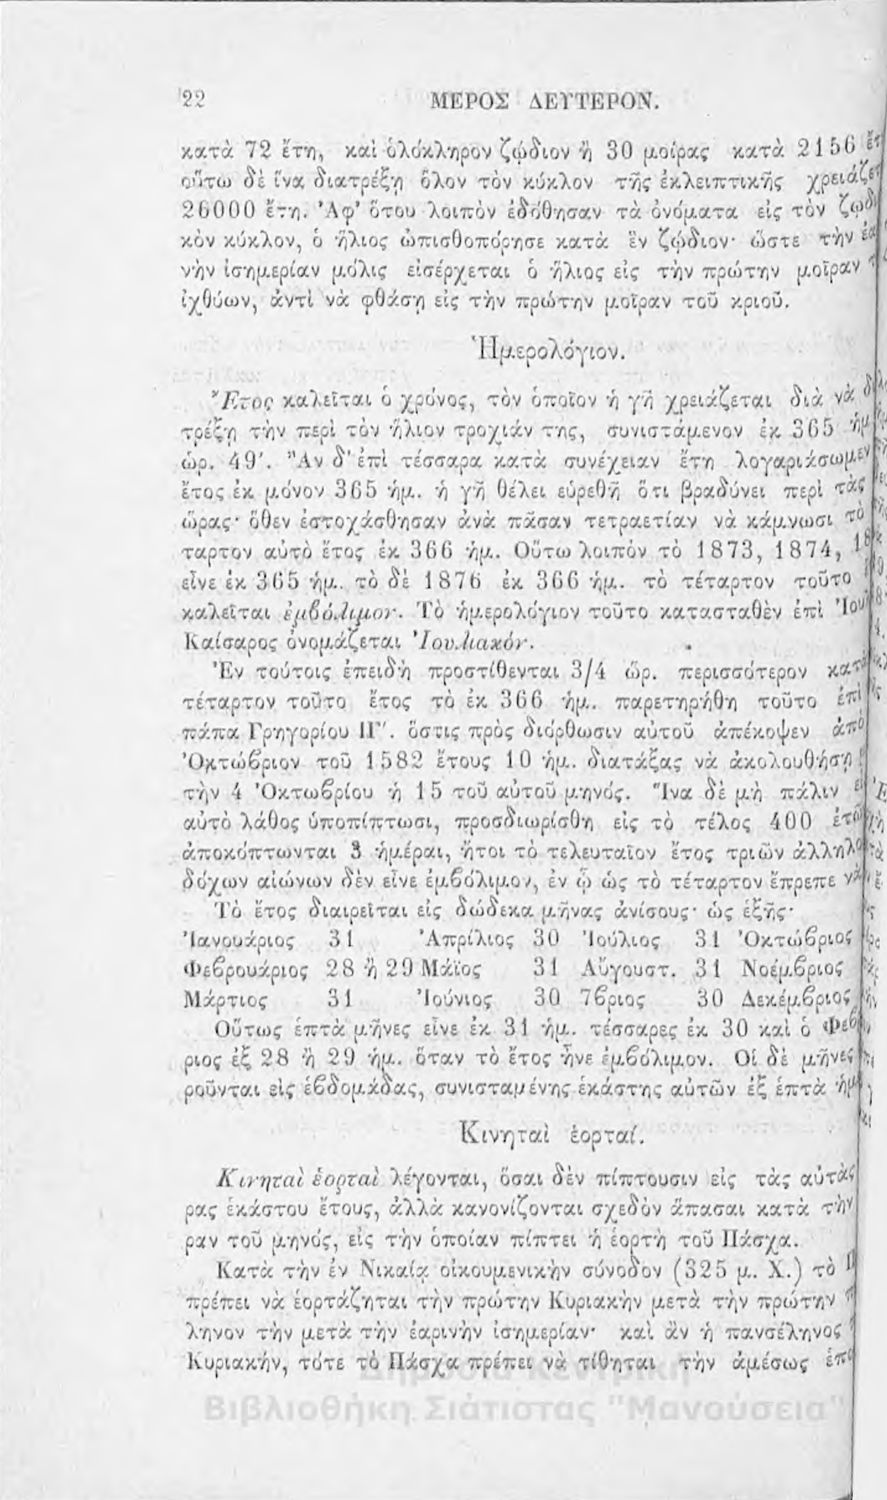 22 ΜΕΡΟΣ ΔΕΥΤΕΡΟΝ.
κατὰ 72 ἔτη, καὶ ὁλόκληρον ζῴδιον ἢ 30 μοίρας κατὰ 2156
οὕτω δὲ ἵνα διατρέξῃ ὅλον τὸν κύκλον τῆς ἐκλειπτικῆς
26000 ἔτη. Ἀφ' ὅτου λοιπὸν ἐδόθησαν τὰ ὀνόματα εἰς τὸν
κὸν κύκλον, ὁ ἥλιος ὠπισθοπόρησε κατὰ ἓν ζῴδιον· ὥστε τὴν
νὴν ἰσημερίαν μόλις εἰσέρχεται ὁ ἥλιος εἰς τὴν πρώτην μοῖραν
ἰχθύων, ἀντὶ νὰ φθάσῃ εἰς τὴν πρώτην μοῖραν τοῦ κριοῦ.
Ἡμερολόγιον.
Ἔτος καλεῖται ὁ χρόνος, τὸν ὁποῖον ἡ γῆ χρειάζεται διὰ νὰ
τρέξῃ τὴν περὶ τὸν ἥλιον τροχιάν της, συνιστάμενον ἐκ 365 ἡμ
ὡρ. 49'. Ἂν δ' ἐπὶ τέσσαρα κατὰ συνέχειαν ἔτη λογαριάσωμεν
ἔτος ἐκ μόνον 365 ἡμ. ἡ γῆ θέλει εὑρεθῆ ὅτι βραδύνει περὶ τὰς
ὥρας· ὅθεν ἐστοχάσθησαν ἀνὰ πᾶσαν τετραετίαν νὰ κάμνωσι τὸ
ταρτον αὐτὸ ἔτος ἐκ 366 ἡμ. Οὕτω λοιπὸν τὸ 1873, 1874,
εἶνε ἐκ 365 ἡμ. τὸ δὲ 1876 ἐκ 366 ἡμ. τὸ τέταρτον τοῦτο
καλεῖται ἐμβόλιμον. Τὸ ἡμερολόγιον τοῦτο κατασταθὲν ἐπὶ Ἰου
Καίσαρος ὀνομάζεται Ἰουλιακόν.
Ἐν τούτοις ἐπειδὴ προστίθενται 3/4 ὡρ. περισσότερον κατὰ
τέταρτον τοῦτο ἔτος τὸ ἐκ 366 ἡμ. παρετηρήθη τοῦτο ἐπὶ
πάπα Γρηγορίου ΙΓ'. ὅστις πρὸς διόρθωσιν αὐτοῦ ἀπέκοψεν ἀπὸ
Ὀκτώβριον τοῦ 1582 ἔτους 10 ἡμ. διατάξας νὰ ἀκολουθήσῃ
τὴν 4 Ὀκτωβρίου ἡ 15 τοῦ αὐτοῦ μηνός. Ἵνα δὲ μὴ πάλιν
αὐτὸ λάθος ὑποπίπτωσι, προσδιωρίσθη εἰς τὸ τέλος 400
ἀποκόπτωνται 3 ἡμέραι, ἤτοι τὸ τελευταῖον ἔτος τριῶν ἀλληλο
δόχων αἰώνων δὲν εἶνε ἐμβόλιμον, ἐν ᾧ ὡς τὸ τέταρτον ἔπρεπε
Τὸ ἔτος διαιρεῖται εἰς δώδεκα μῆνας ἀνίσους· ὡς ἑξῆς·
Ἰανουάριος 31 Ἀπρίλιος 30 Ἰούλιος 31 Ὀκτώβριος
Φεβρουάριος 28 ἢ 29 Μάϊος 31 Αὔγουστ. 31 Νοέμβριος
Μάρτιος 31 Ἰούνιος 30 7βριος 30 Δεκέμβριος
Οὕτως ἑπτὰ μῆνες εἶνε ἐκ 31 ἡμ. τέσσαρες ἐκ 30 καὶ ὁ Φεβ
ριος ἐξ 28 ἢ 29 ἡμ. ὅταν τὸ ἔτος ἦνε ἐμβόλιμον. Οἱ δὲ μῆνες
ροῦνται εἰς ἑβδομάδας, συνισταμένης ἑκάστης αὐτῶν ἐξ ἑπτὰ ἡμ
Κινηταὶ ἑορταί.
Κινηταὶ ἑορταὶ λέγονται, ὅσαι δὲν πίπτουσιν εἰς τὰς αὐτὰς
ρας ἑκάστου ἔτους, ἀλλὰ κανονίζονται σχεδὸν ἅπασαι κατὰ τὴν
ραν τοῦ μηνός, εἰς τὴν ὁποίαν πίπτει ἡ ἑορτὴ τοῦ Πάσχα.
Κατὰ τὴν ἐν Νικαίᾳ οἰκουμενικὴν σύνοδον (325 μ. Χ.) τὸ
πρέπει νὰ ἑορτάζηται τὴν πρώτην Κυριακὴν μετὰ τὴν πρώτην
ληνον τὴν μετὰ τὴν ἐαρινὴν ἰσημερίαν· καὶ ἂν ἡ πανσέληνος
Κυριακήν, τότε τὸ Πάσχα πρέπει νὰ τίθηται τὴν ἀμέσως
Δημόσια Κεντρική
Βιβλιοθήκη Σιάτιστας "Μανούσεια"